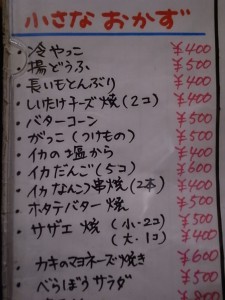 小さな おかず
・冷やっこ ¥400
・揚どうふ ¥500
・長いもとんぶり ¥400
・しいたけチーズ焼(2コ) ¥400
・バターコーン ¥500
・がっこ(つけもの) ¥500
・イカの塩から ¥400
・イカだんご(5コ) ¥600
・イカなんこつ串焼(2本) ¥400
・ホタテバター焼 ¥500
・サザエ焼 (小・2コ) ¥500
(大・1コ) ¥400
カキのマヨネーズ焼き ¥600
・べらぼうサラダ ¥500